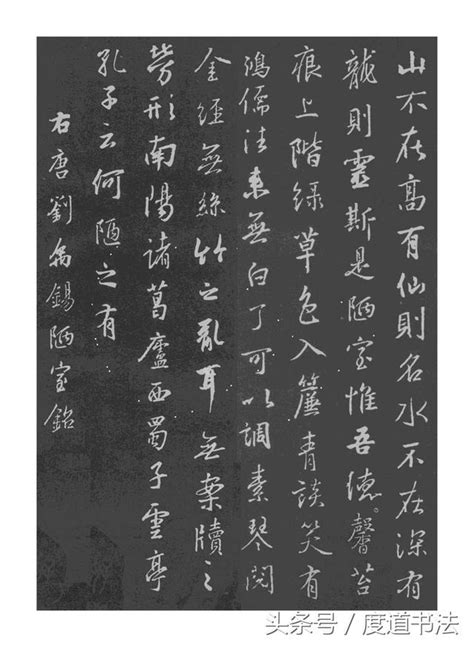 山不在高有仙則名水不在深有
龍則靈斯是陋室惟吾德馨苔
痕上階绿草色入簾青談笑有
鴻儒往来無白丁可以調素琴閱
金經無絲竹之亂耳無案牘之
勞形南陽諸葛廬西蜀子雲亭
孔子云何陋之有
右唐劉禹錫陋室銘
头条号/度道书法